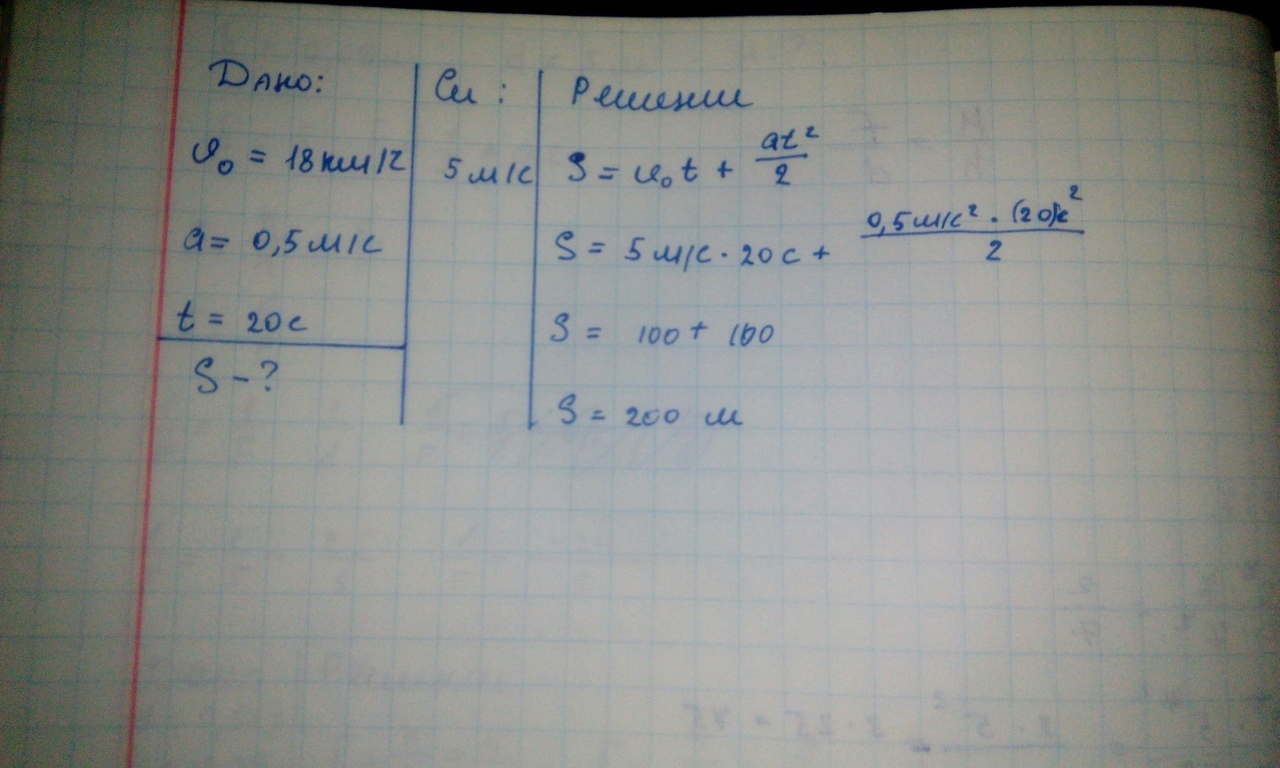 Дано:
υ₀ = 18 км/г
a = 0,5 м/с
t = 20 с
S - ?
Си :
5 м/с
Решении
S = υ₀t + at²/2
S = 5 м/с · 20 с + 0,5 м/с² · (20)с²/2
S = 100 + 100
S = 200 м
3 · 5² = 3 · 25 = 75